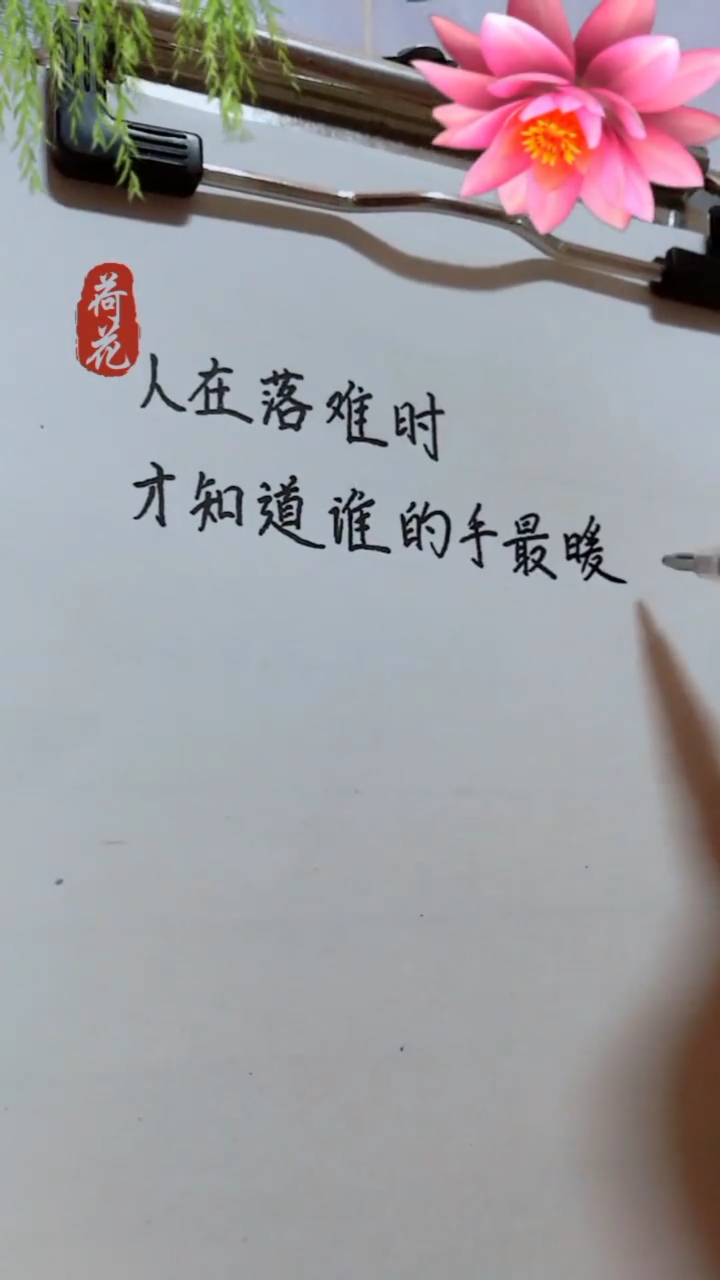 荷花
人在落难时
才知道谁的手最暖